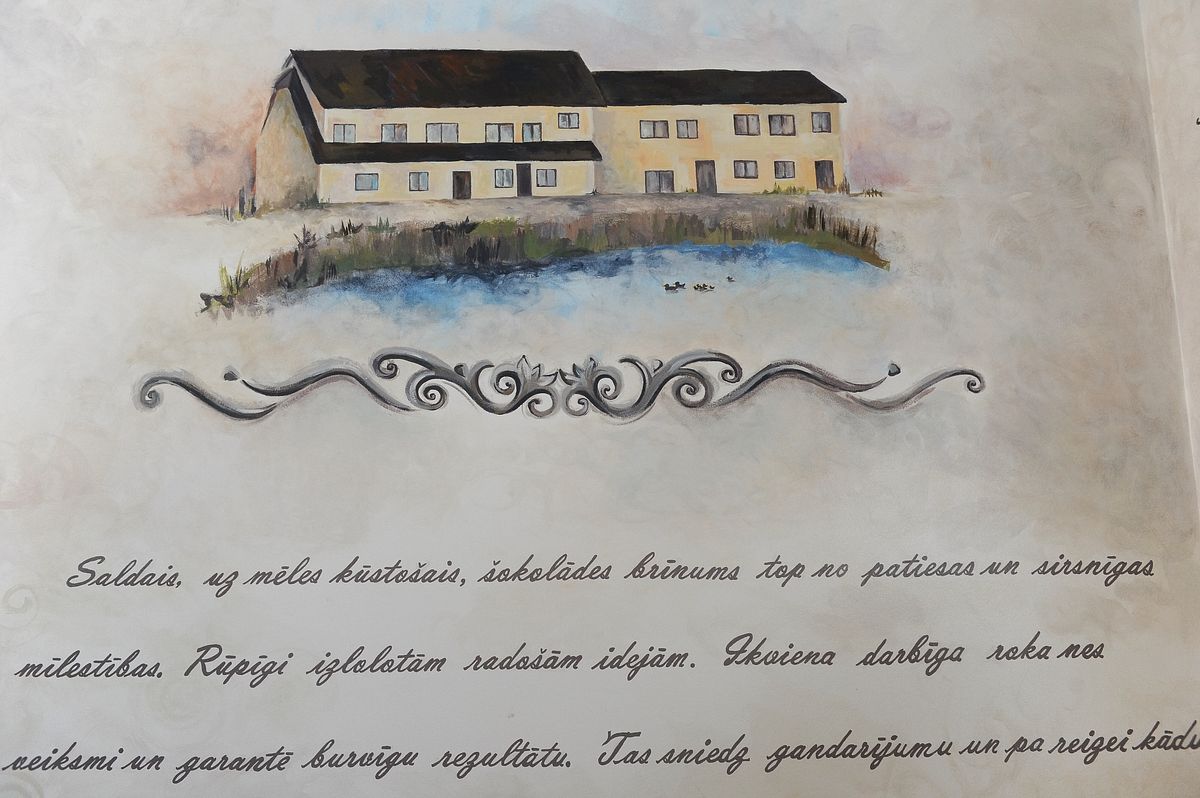 Saldais, uz mēles kūstošais, šokolādes brīnums top no patiesas un sirsnīgas
mīlestības. Rūpīgi izlolotām radošām idejām. Ikviena darbīga roka nes
veiksmi un garantē burvīgu rezultātu. Tas sniedz gandarījumu un pa reizei kādu